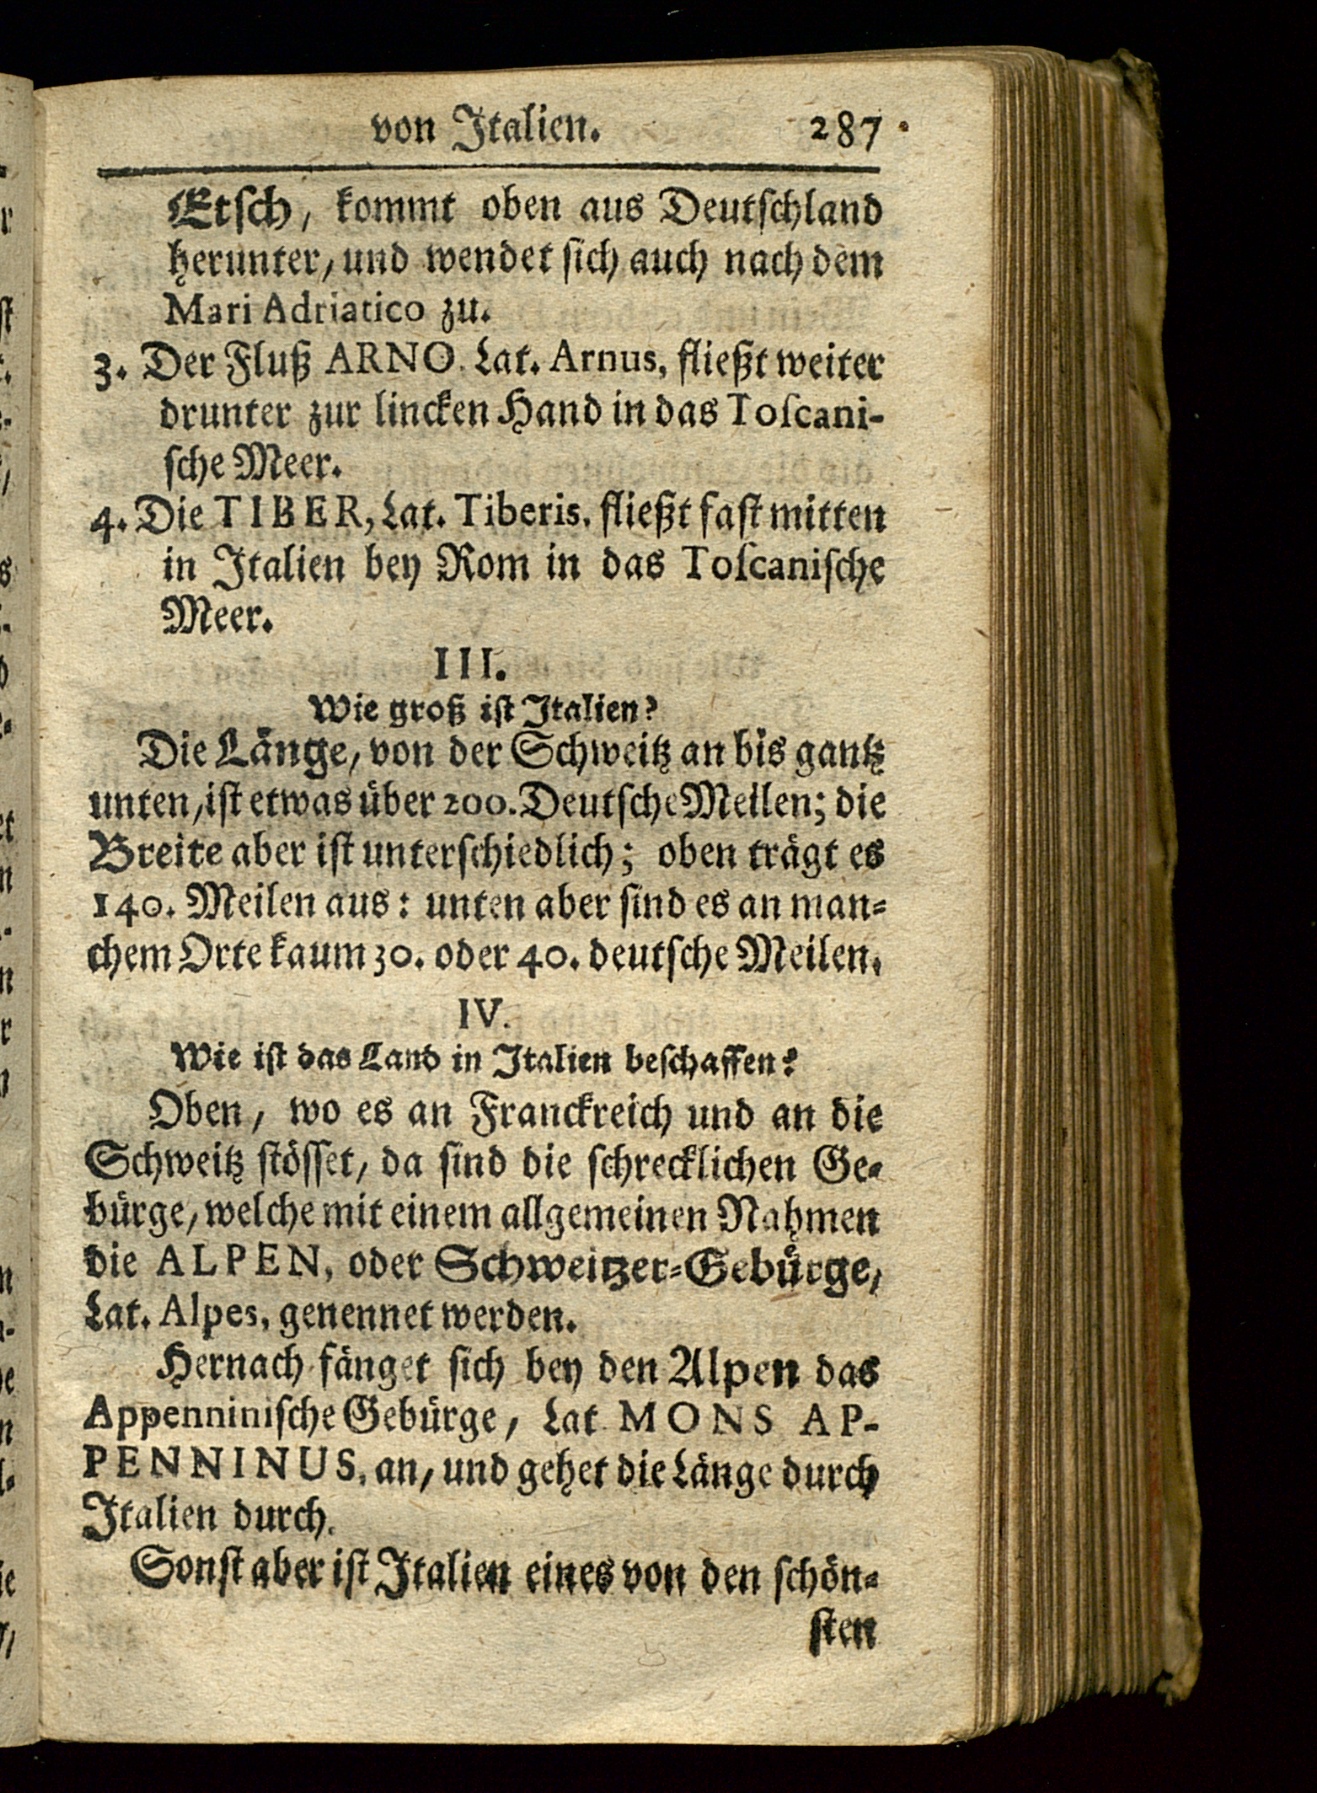 von Italien. 287
Etsch, kommt oben aus Deutschland
herunter, und wendet sich auch nach dem
Mari Adriatico zu.
3. Der Fluß ARNO. Lat. Arnus, fließt weiter
drunter zur lincken Hand in das Toscani-
sche Meer.
4. Die TIBER, Lat. Tiberis, fließt fast mitten
in Italien bey Rom in das Toscanische
Meer.
III.
Wie groß ist Italien?
Die Länge, von der Schweitz an bis gantz
unten, ist etwas über 200. Deutsche Meilen; die
Breite aber ist unterschiedlich; oben trägt es
140. Meilen aus: unten aber sind es an man-
chem Orte kaum 30. oder 40. deutsche Meilen.
IV.
Wie ist das Land in Italien beschaffen?
Oben, wo es an Franckreich und an die
Schweitz stösset, da sind die schrecklichen Ge-
bürge, welche mit einem allgemeinen Nahmen
die ALPEN, oder Schweitzer-Gebürge,
Lat. Alpes, genennet werden.
Hernach fänget sich bey den Alpen das
Appenninische Gebürge, Lat. MONS AP-
PENNINUS, an, und gehet die Länge durch
Italien durch.
Sonst aber ist Italien eines von den schön-
sten